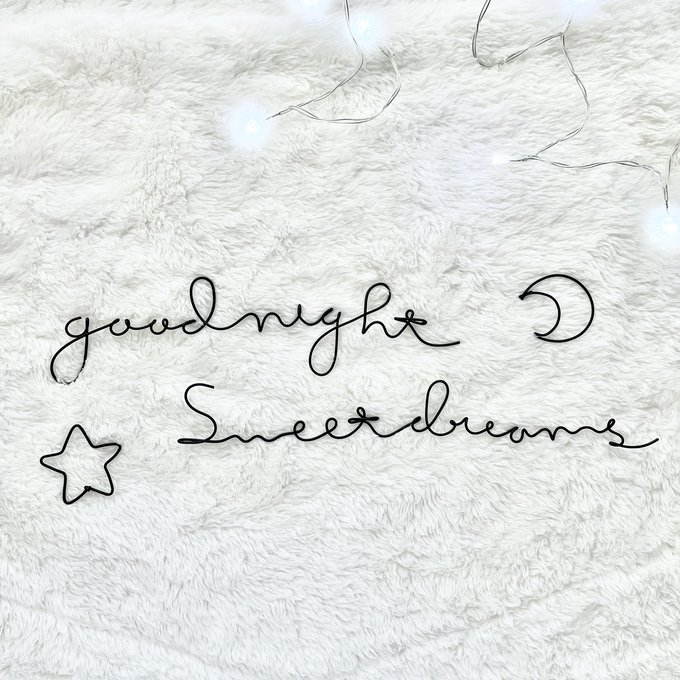 goodnight
Sweetdreams